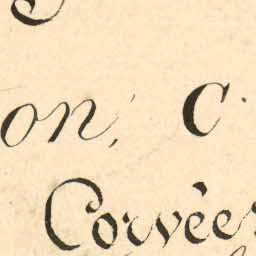 on, C
Corvées